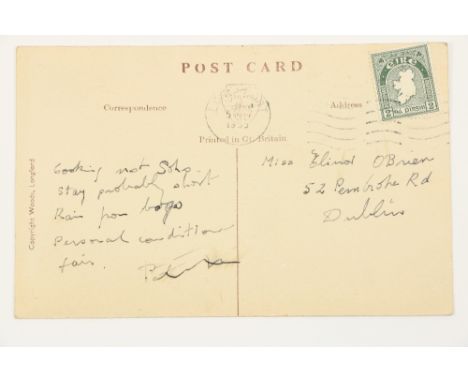 POST CARD
Correspondence
Address
1953
Printed in Gt. Britain
ÉIRE
2 Pingin 2
Copyright Woods, Longford
Cooking not Soho.
Stay probably short
Rain from bogs
Personal condition
fair.
Miss Elinor O'Brien
52 Pembroke Rd
Dublin